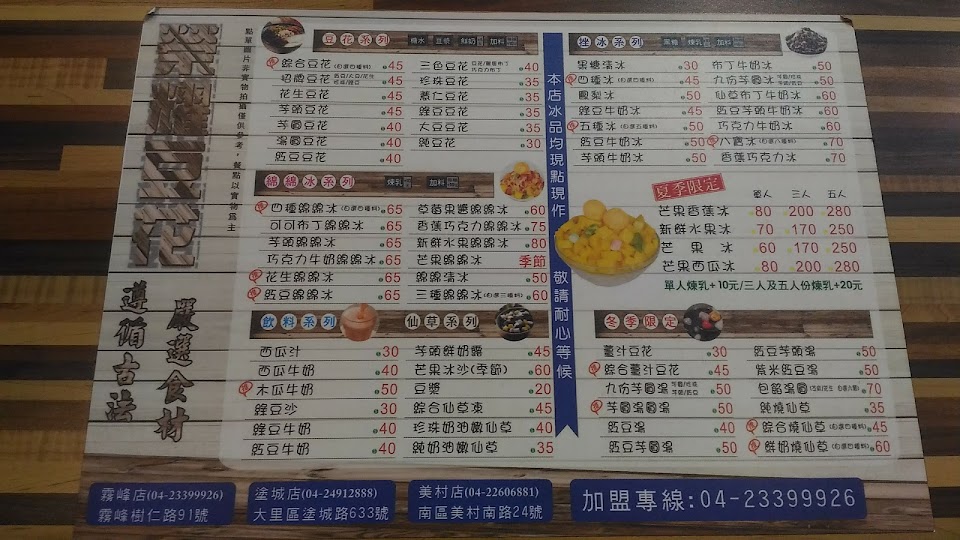 點單圖片非實物拍攝僅供參考，餐點以實物為主
豆花
嚴選食材
遵循古法
豆花系列 糖水 豆漿 鮮奶 加料
綜合豆花(自選四種料) 45
招牌豆花 45
花生豆花 45
芋頭豆花 45
芋圓豆花 40
湯圓豆花 40
紅豆豆花 40
三色豆花 40
珍珠豆花 40
薏仁豆花 40
綠豆豆花 40
大豆豆花 35
純豆花 30
綿綿冰系列 煉乳 加料
四種綿綿冰(自選四種料) 65
可可布丁綿綿冰 65
芋頭綿綿冰 65
巧克力牛奶綿綿冰 65
花生綿綿冰 65
紅豆綿綿冰 65
草莓果醬綿綿冰 60
香蕉巧克力綿綿冰 75
新鮮水果綿綿冰 80
芒果綿綿冰 季節
綿綿清冰 50
三種綿綿冰(自選三種料) 60
飲料系列
西瓜汁 30
西瓜牛奶 40
木瓜牛奶 50
綠豆沙 30
綠豆牛奶 40
紅豆牛奶 40
仙草系列
芋頭鮮奶露 45
芒果冰沙(季節) 60
豆漿 20
綜合仙草凍 45
珍珠奶油嫩仙草 40
純奶油嫩仙草 35
本店冰品均現點現作 敬請耐心等候
剉冰系列 黑糖 煉乳 加料
黑糖清冰 30
四種冰(自選四種料) 45
鳳梨冰 50
綠豆牛奶冰 50
五種冰(自選五種料) 50
紅豆牛奶冰 50
芋頭牛奶冰 50
布丁牛奶冰 50
九份芋圓冰 50
仙草布丁牛奶冰 60
紅豆芋頭牛奶冰 60
巧克力牛奶冰 60
八寶冰(自選八種料) 70
香蕉巧克力冰 70
夏季限定 單人 三人 五人
芒果香蕉冰 80 200 280
新鮮水果冰 70 170 250
芒果冰 60 170 250
芒果西瓜冰 80 200 280
單人煉乳+10元/三人及五人份煉乳+20元
冬季限定
薑汁豆花 30
綜合薑汁豆花 45
九份芋圓湯 50
芋圓湯圓湯 50
紅豆湯 40
紅豆芋圓湯 50
紅豆芋頭湯 50
紫米紅豆湯 50
包餡湯圓 70
純燒仙草 35
綜合燒仙草(自選四種料) 45
鮮奶燒仙草(自選四種料) 60
霧峰店(04-23399926)
霧峰樹仁路91號
塗城店(04-24912888)
大里區塗城路633號
美村店(04-22606881)
南區美村南路24號
加盟專線:04-23399926